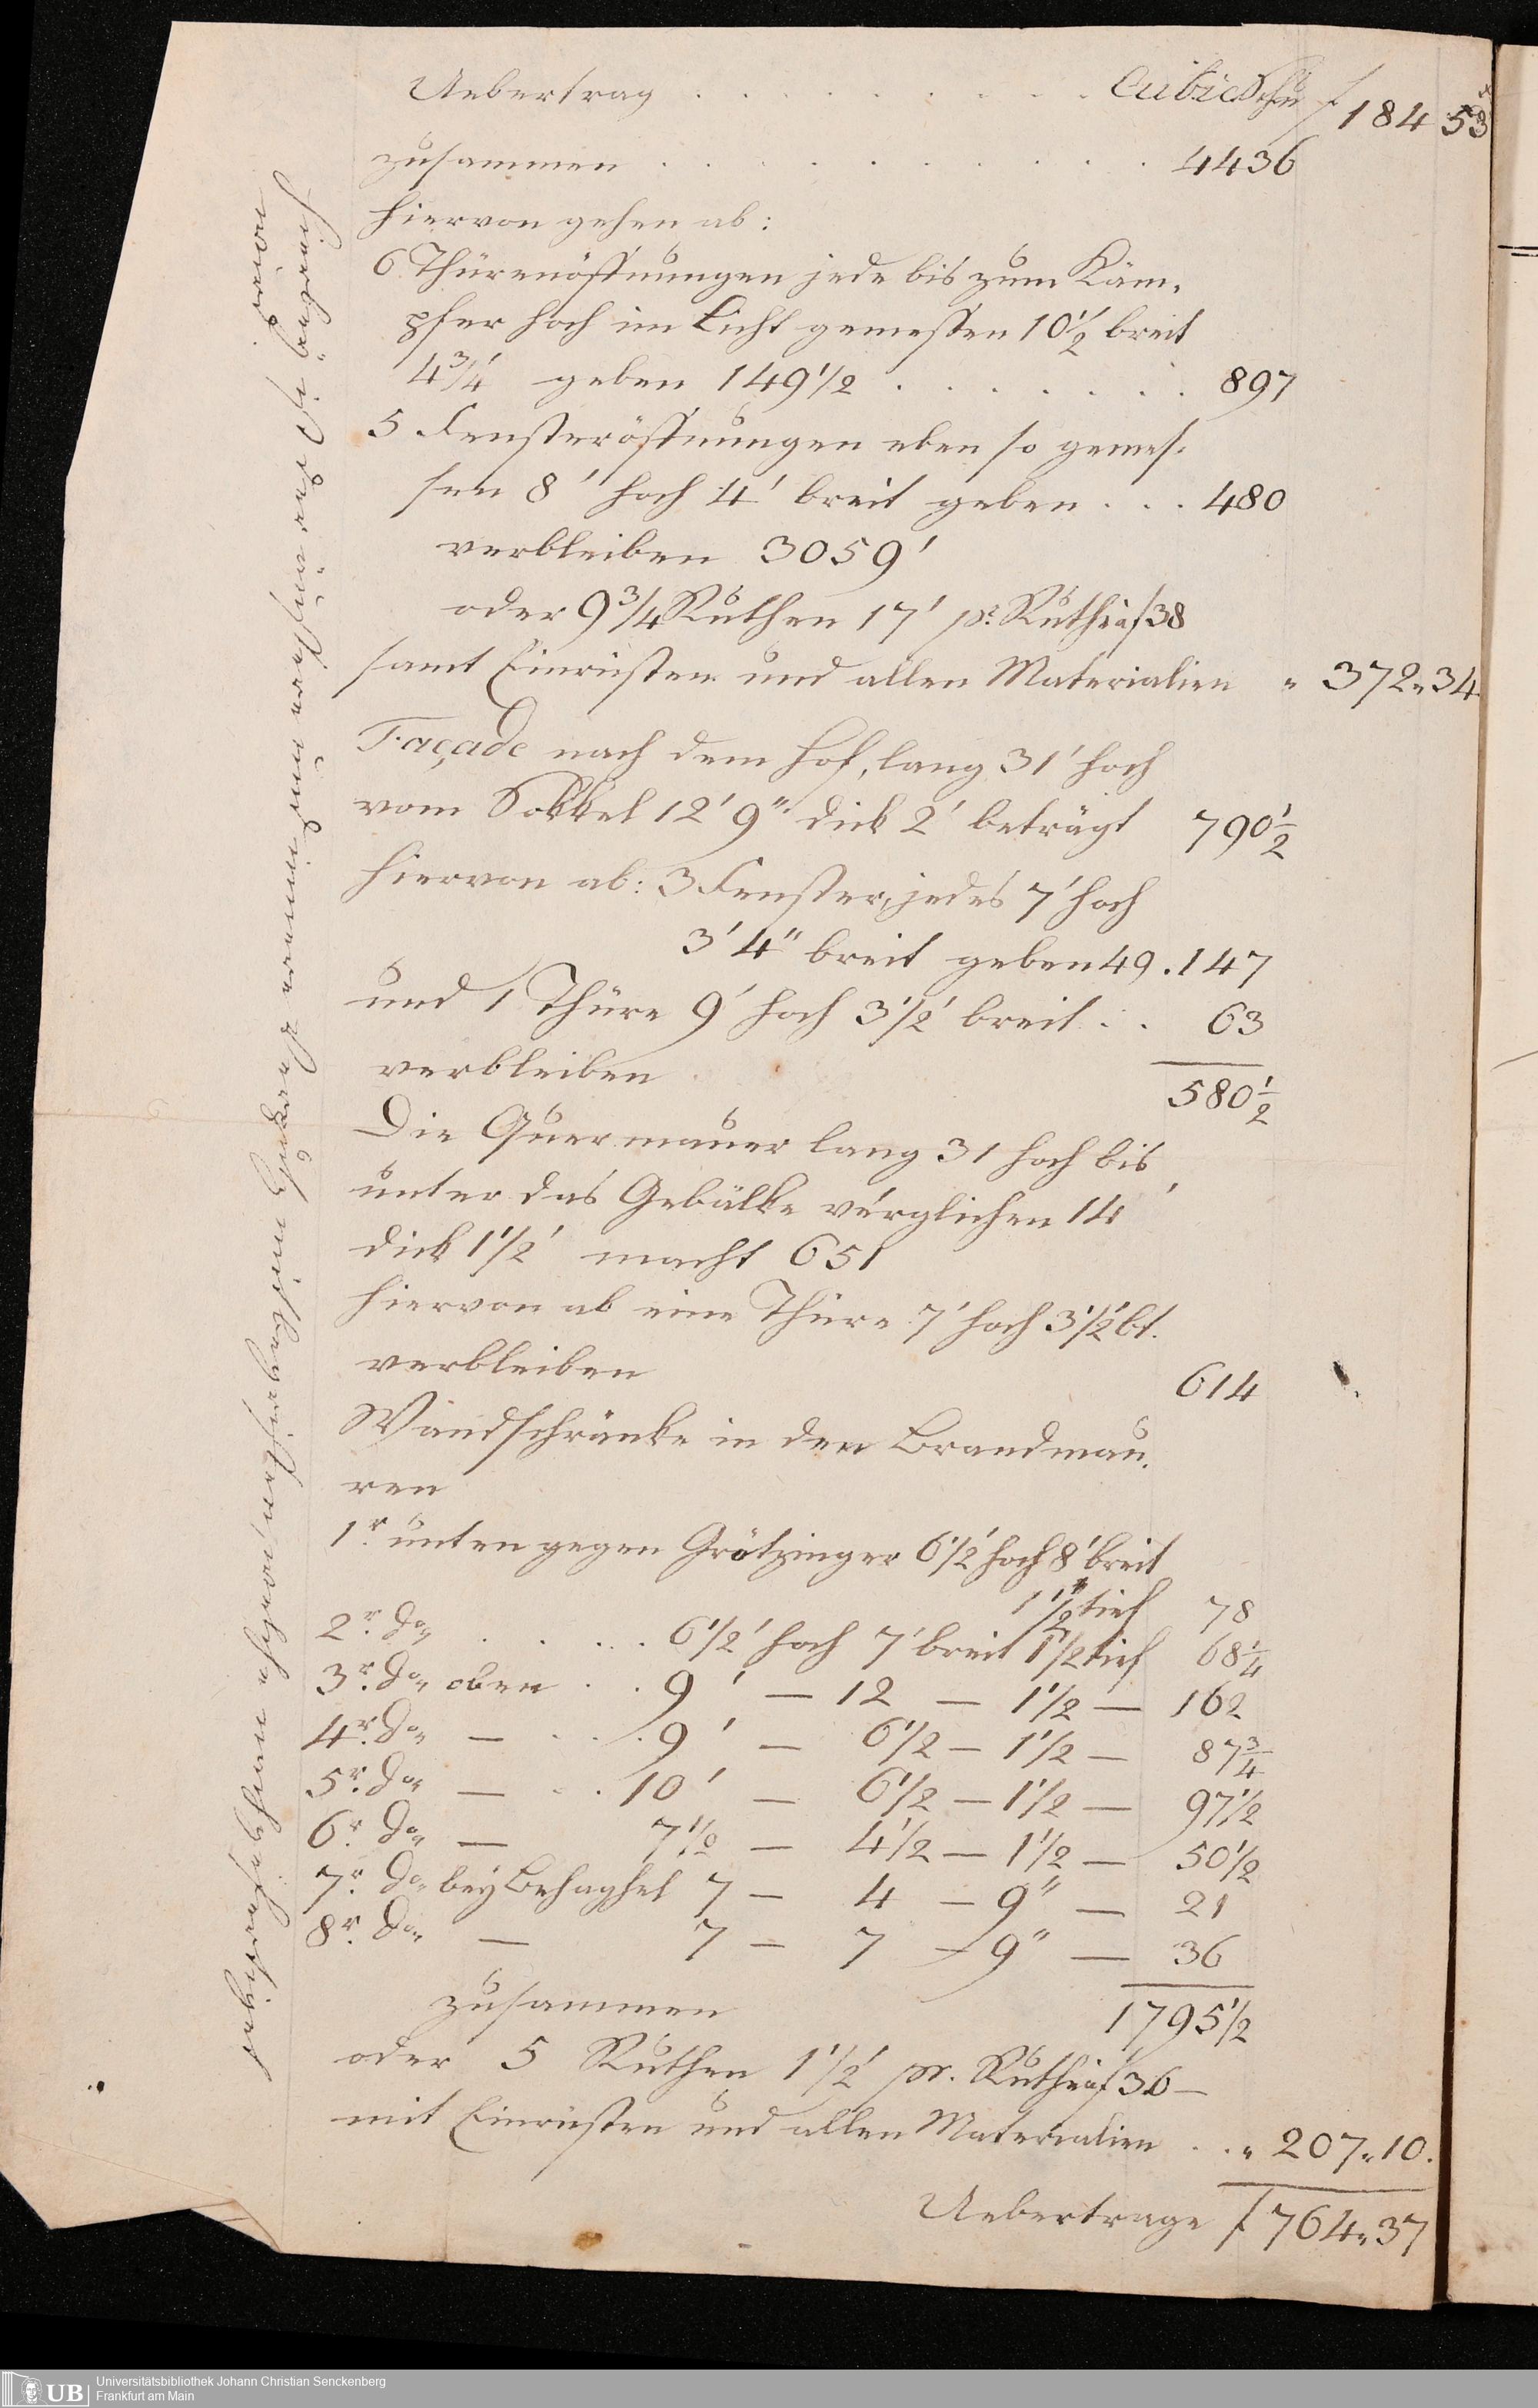 Uebertrag . . . . . . . . . Cubic Schu f 184 53
zusammen . . . . . . . . . . 4436
hiervon gehen ab:
6 Thürenöffnungen jede bis zum Käm-
pfer hoch im Licht gemessen 10 1/2' breit
4 3/4' geben 149 1/2 . . . . . . . 897
5 Fensteröffnungen eben so gemes-
sen 8' hoch 4' breit geben . . . 480
verbleiben 3059'
oder 9 3/4 Ruthen 17' pr. Ruthe a f 38
samt Einrüsten und allen Materialien " 372 " 34.
Façade nach dem Hof, lang 31' hoch
vom Sokkel 12' 9" dick 2' beträgt 790 1/2
hiervon ab: 3 Fenster, jedes 7' hoch
3' 4" breit geben 49 . 147
und 1 Thüre 9' hoch 3 1/2' breit . . 63
verbleiben 580 1/2
Die Quermauer lang 31 hoch bis
unter das Gebälke verglichen 14'
dick 1 1/2' macht 651
hiervon ab eine Thüre 7' hoch 3 1/2' bt.
verbleiben 614
Wandschränke in den Brandmau-
ren
1r. unten gegen Grötzinger 6 1/2' hoch 8' breit
1 1/2' tief 78
2r. do . . . . . 6 1/2' hoch 7' breit 1 1/2 tief 68 1/4
3r. do oben . . 9' — 12 — 1 1/2 — 162
4r. do — . . . 9' — 6 1/2 — 1 1/2 — 87 3/4
5r. do — . . 10' — 6 1/2 — 1 1/2 — 97 1/2
6r. do — 7 1/2 — 4 1/2 — 1 1/2 — 50 1/2
7r. do bey Behaghel 7 — 4 — 9" — 21
8r. do — 7 — 7 — 9" — 36
zusammen 1795 1/2
oder 5 Ruthen 1 1/2' pr. Ruthe a f 36 —
mit Einrüsten und allen Materialien . . " 207 " 10.
Uebertrage f 764 " 37
UB
Universitätsbibliothek Johann Christian Senckenberg
Frankfurt am Main